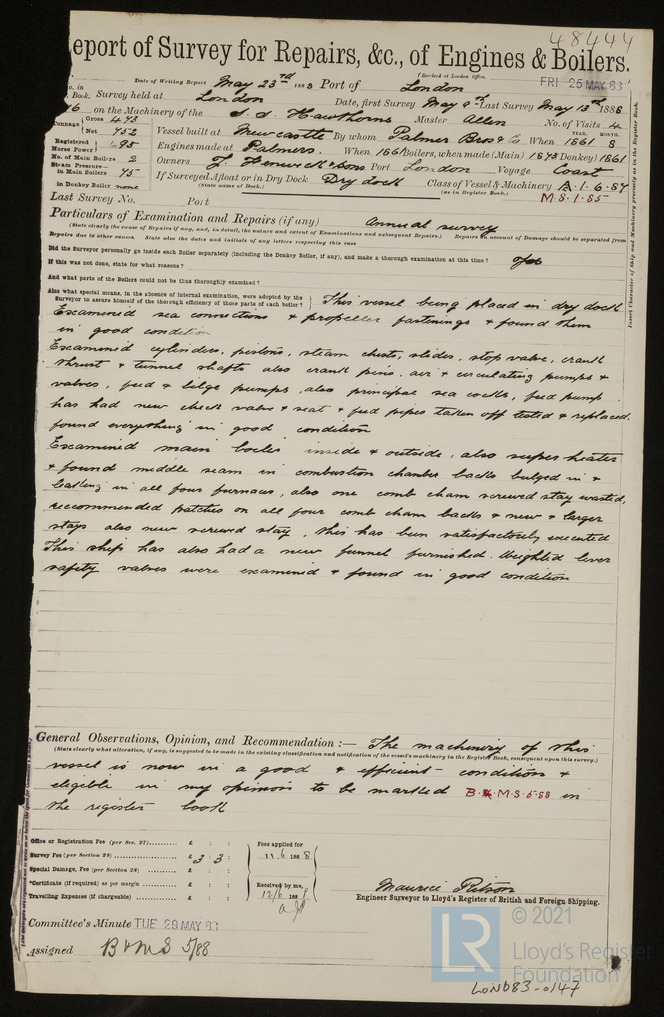 48444
eport of Survey for Repairs, &c., of Engines & Boilers.
Date of Writing Report May 23rd 1888 Port of London
Received at London Office, FRI 25 MAY 83
o. in Book. Survey held at London Date, first Survey May 9th Last Survey May 13th 1888
on the Machinery of the S.S. Hawthorns Master Allen No. of Visits 4
Tonnage Gross 473
Net 452
Vessel built at Newcastle By whom Palmer Bros & Co When 1861 8
YEAR. MONTH.
Registered Horse Power 95
Engines made at Palmers. When 1861 Boilers, when made (Main) 1878 Donkey) 1861
No. of Main Boilers 2
Owners J. Fenwick & Sons Port London Voyage Coast
Steam Pressure in Main Boilers 45
If Surveyed Afloat or in Dry Dock Dry dock Class of Vessel & Machinery A.1.6.87
(State name of Dock.) (as in Register Book.) M.S.1.85
in Donkey Boiler none
Last Survey No. Port
Particulars of Examination and Repairs (if any) Annual survey
(State clearly the cause of Repairs if any, and, in detail, the nature and extent of Examinations and subsequent Repairs.) Repairs on account of Damage should be separated from
Repairs due to other causes. State also the dates and initials of any letters respecting this case
Did the Surveyor personally go inside each Boiler separately (including the Donkey Boiler, if any), and make a thorough examination at this time? Yes
If this was not done, state for what reasons?
And what parts of the Boilers could not be thus thoroughly examined?
Also what special means, in the absence of internal examination, were adopted by the
Surveyor to assure himself of the thorough efficiency of those parts of each boiler? This vessel being placed in dry dock
Examined sea connections & propeller fastenings & found them
in good condition
Examined cylinders, pistons, steam chests, slides, stop valve, crank
thrust & tunnel shafts also crank pins, air & circulating pumps &
valves, feed & bilge pumps, also principal sea cocks, feed pump
has had new check valve & seat & feed pipes taken off tested & replaced.
found everything in good condition
Examined main boiler inside & outside, also superheater
& found middle seam in combustion chamber backs bulged in &
leaking in all four furnaces, also one comb cham screwed stay wasted,
recommended patches on all four comb cham backs & new & larger
stays also new screwed stay, this has been satisfactorily executed
This ship has also had a new funnel furnished. Weighted lever
safety valves were examined & found in good condition
General Observations, Opinion, and Recommendation :— The machinery of this
(State clearly what alteration, if any, is suggested to be made in the existing classification and notification of the vessel's machinery in the Register Book, consequent upon this survey.)
vessel is now in a good & efficient condition &
elegible in my opinion to be marked B. & M.S. 5.88 in
the register book
Office or Registration Fee (per Sec. 27) £ : :
Survey Fee (per Section 28) £ 3 : 3 :
Special Damage, Fee (per Section 28) £ : :
*Certificate (if required) as per margin £ : :
Travelling Expenses (if chargeable) £ : :
Fees applied for
11.6 1888
Received by me,
12/6 1888
Maurice Pitson
Engineer Surveyor to Lloyd's Register of British and Foreign Shipping.
Committee's Minute TUE 29 MAY 83
Assigned B & MS 5/88
LR
© 2021
Lloyd's Register
Foundation
LON683-0147